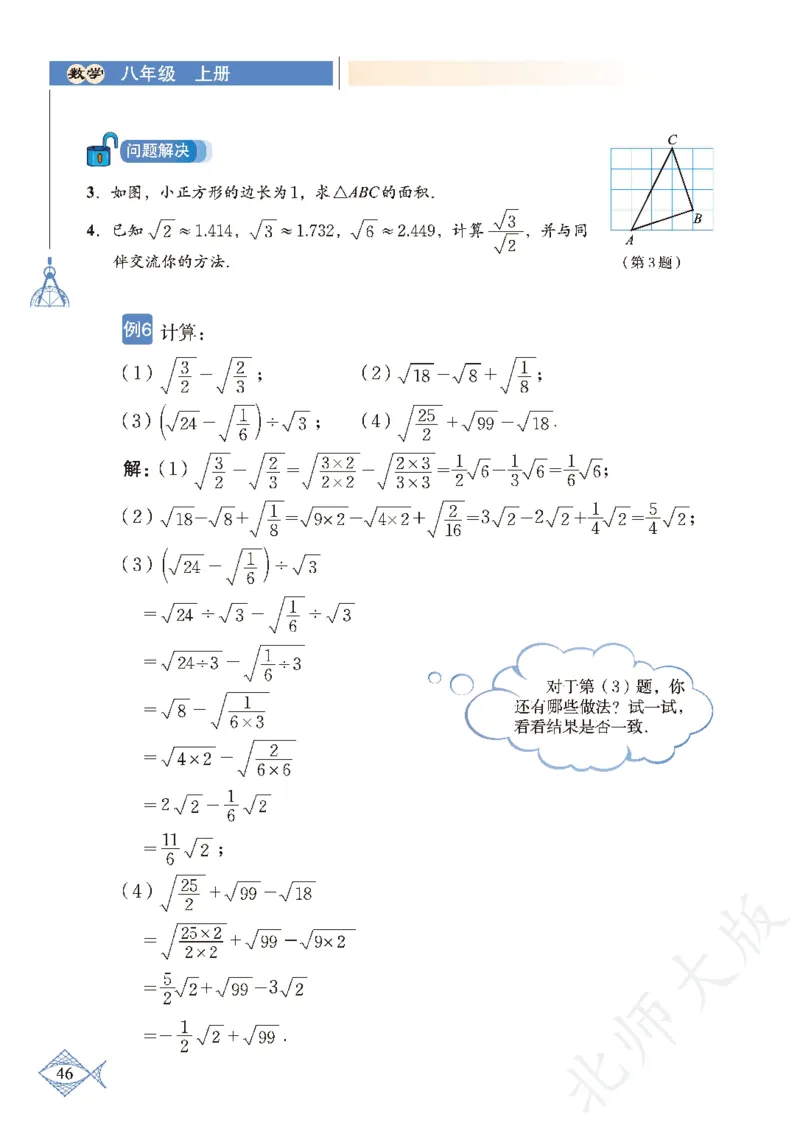 数学 八年级 上册
问题解决
3. 如图，小正方形的边长为1，求△ABC的面积.
4. 已知 √2 ≈1.414，√3 ≈1.732，√6 ≈2.449，计算 √3/√2，并与同
伴交流你的方法.
C
B
A
（第3题）
例6 计算：
（1）√(3/2) − √(2/3)；（2）√18 − √8 + √(1/8)；
（3）(√24 − √(1/6)) ÷ √3；（4）√(25/2) + √99 − √18.
解：（1）√(3/2) − √(2/3) = √((3×2)/(2×2)) − √((2×3)/(3×3)) = 1/2√6 − 1/3√6 = 1/6√6；
（2）√18 − √8 + √(1/8) = √(9×2) − √(4×2) + √(2/16) = 3√2 − 2√2 + 1/4√2 = 5/4√2；
（3）(√24 − √(1/6)) ÷ √3
= √24 ÷ √3 − √(1/6) ÷ √3
= √(24÷3) − √(1/6÷3)
= √8 − √(1/(6×3))
= √(4×2) − √(2/(6×6))
= 2√2 − 1/6√2
= 11/6√2；
对于第（3）题，你
还有哪些做法？试一试，
看看结果是否一致.
（4）√(25/2) + √99 − √18
= √((25×2)/(2×2)) + √99 − √(9×2)
= 5/2√2 + √99 − 3√2
= −1/2√2 + √99.
46
北师大版